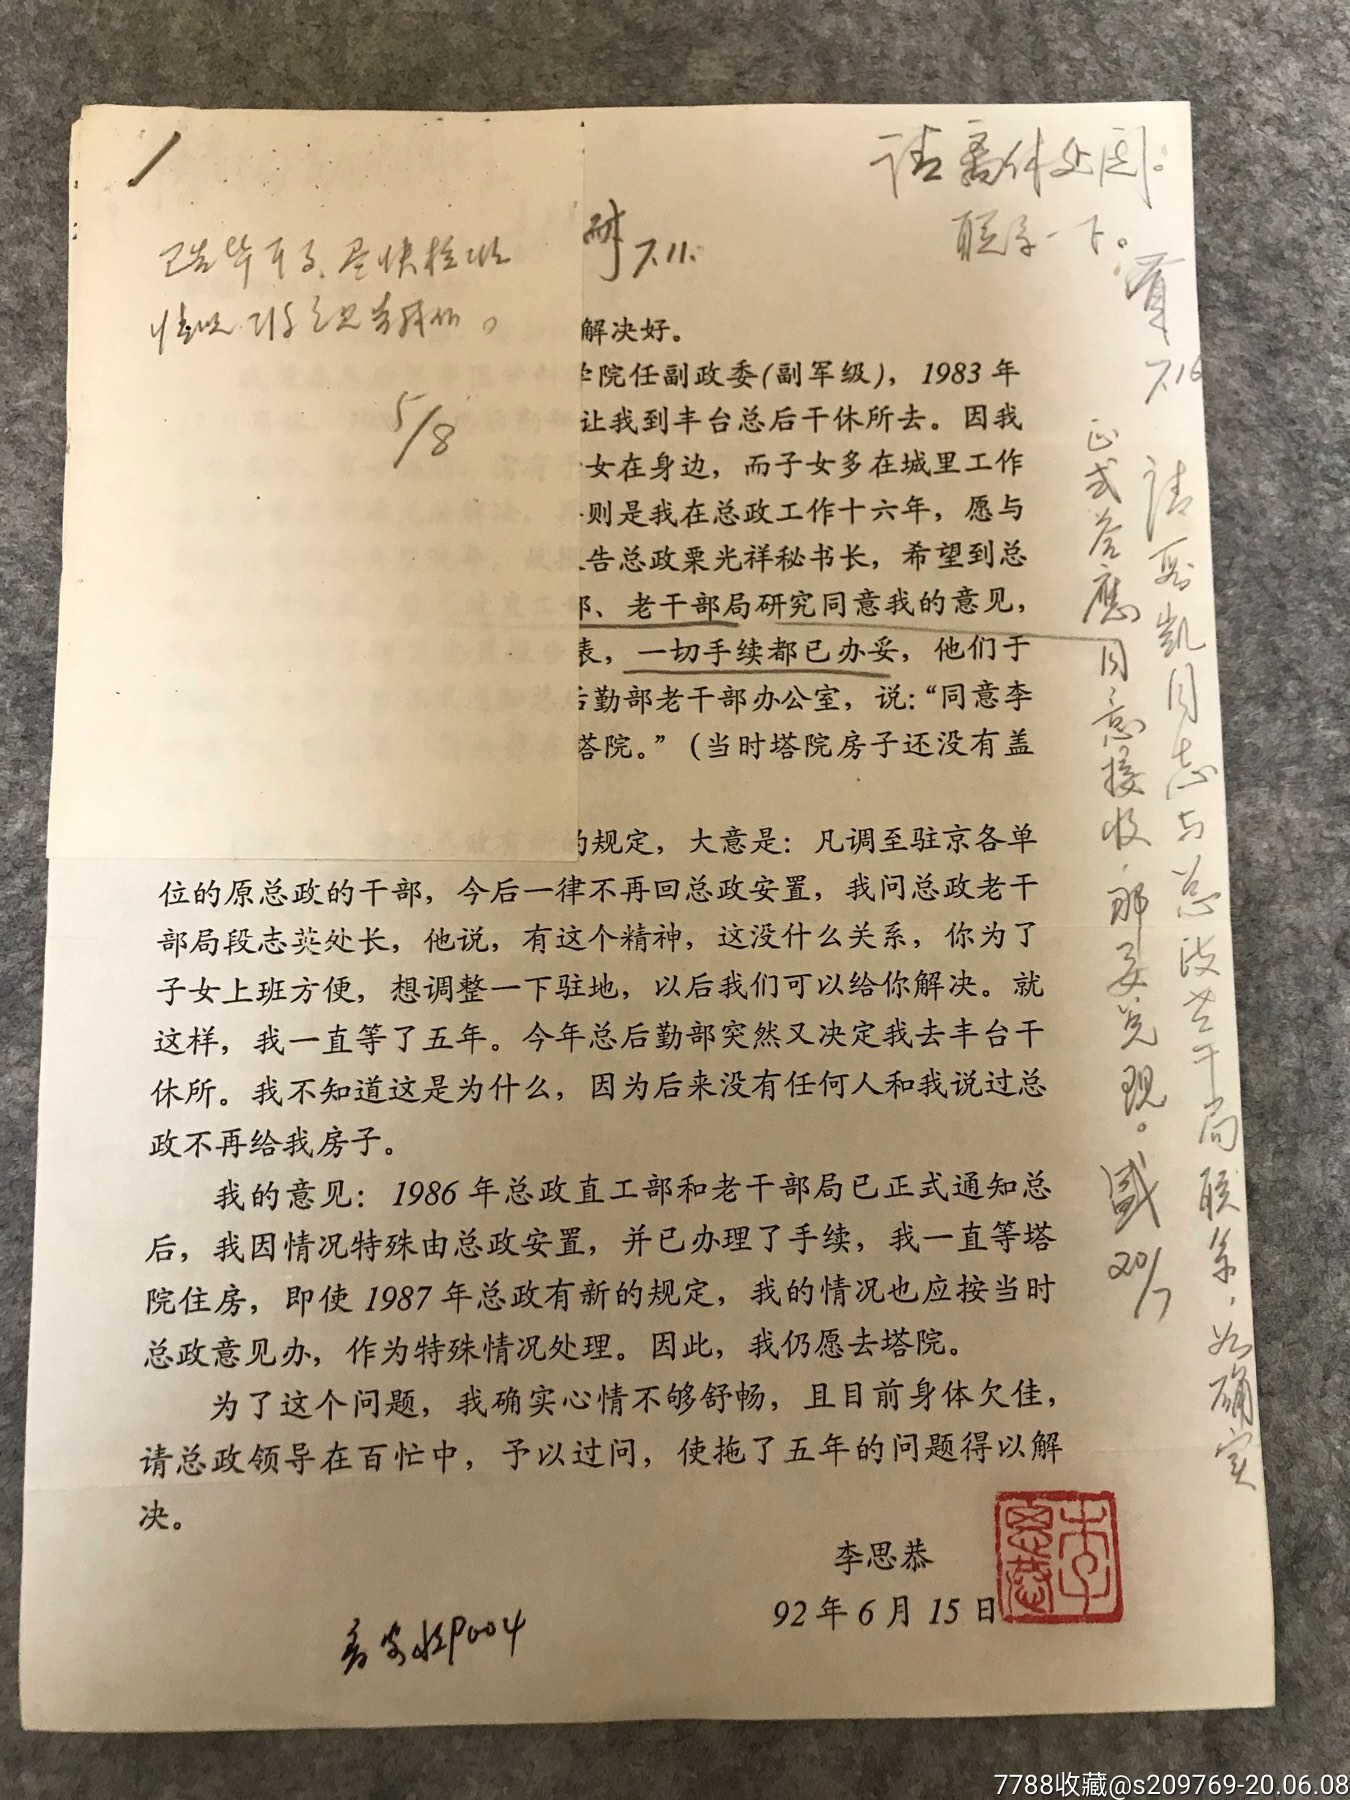 请离休处阅。
联系一下。
7.16
7.11.
5/8
解决好。
学院任副政委(副军级)，1983年
让我到丰台总后干休所去。因我
女在身边，而子女多在城里工作
则是我在总政工作十六年，愿与
告总政栗光祥秘书长，希望到总
部、老干部局研究同意我的意见，
表，一切手续都已办妥，他们于
后勤部老干部办公室，说：“同意李
塔院。”(当时塔院房子还没有盖
的规定，大意是：凡调至驻京各单
位的原总政的干部，今后一律不再回总政安置，我问总政老干
部局段志英处长，他说，有这个精神，这没什么关系，你为了
子女上班方便，想调整一下驻地，以后我们可以给你解决。就
这样，我一直等了五年。今年总后勤部突然又决定我去丰台干
休所。我不知道这是为什么，因为后来没有任何人和我说过总
政不再给我房子。
我的意见：1986年总政直工部和老干部局已正式通知总
后，我因情况特殊由总政安置，并已办理了手续，我一直等塔
院住房，即使1987年总政有新的规定，我的情况也应按当时
总政意见办，作为特殊情况处理。因此，我仍愿去塔院。
为了这个问题，我确实心情不够舒畅，且目前身体欠佳，
请总政领导在百忙中，予以过问，使拖了五年的问题得以解
决。
李思恭
92年6月15日
李思恭
请凯同志与总政老干局联系，如确实
正式答应同意接收，那要兑现。盛
20/7
7788收藏@s209769-20.06.08